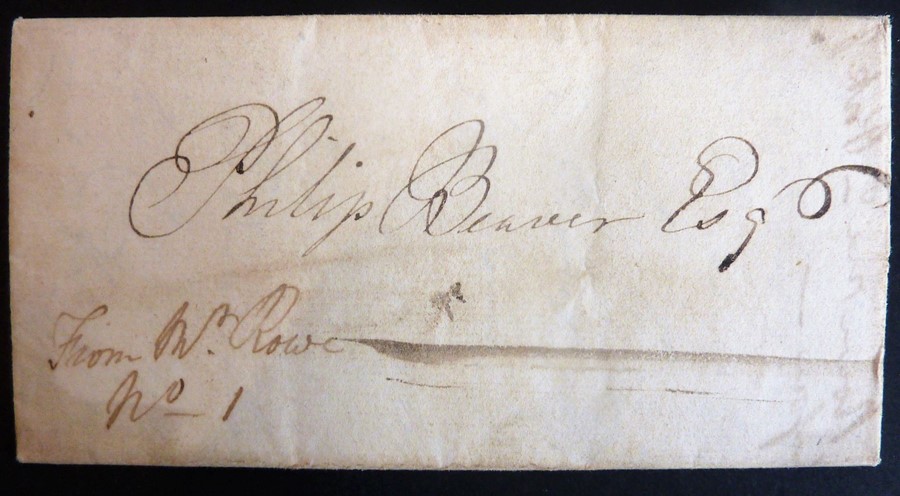 Philip Beaver Esqr
From Mr. Rowe
No 1